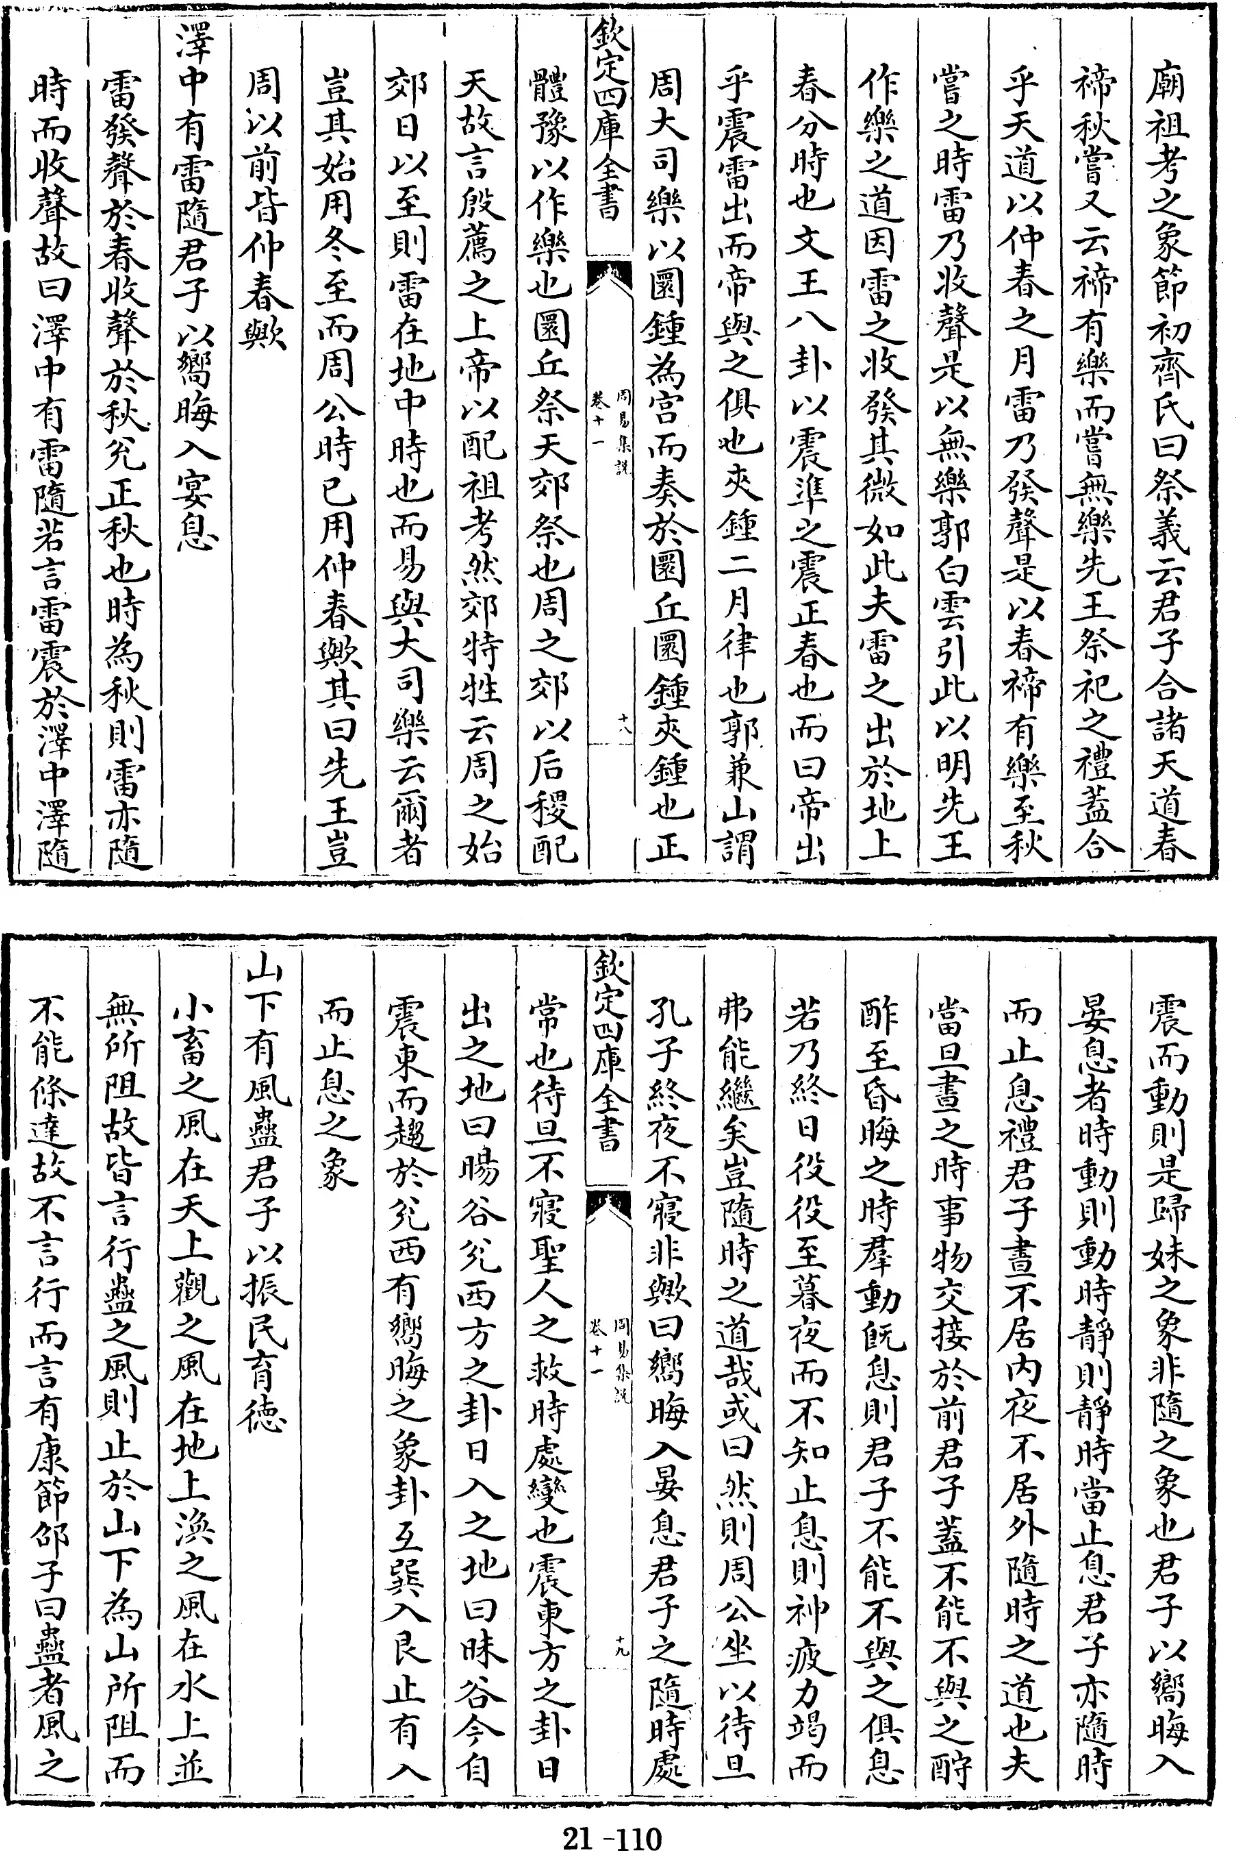 廟祖考之象節初齊氏曰祭義云君子合諸天道春
禘秋嘗又云禘有樂而嘗無樂先王祭祀之禮蓋合
乎天道以仲春之月雷乃發聲是以春禘有樂至秋
嘗之時雷乃收聲是以無樂郭白雲引此以明先王
作樂之道因雷之收發其微如此夫雷之出於地上
春分時也文王八卦以震準之震正春也而曰帝出
乎震雷出而帝與之俱也夾鍾二月律也郭兼山謂
周大司樂以圜鍾為宮而奏於圜丘圜鍾夾鍾也正
欽定四庫全書
周易集說
卷十一
十八
體豫以作樂也圜丘祭天郊祭也周之郊以后稷配
天故言殷薦之上帝以配祖考然郊特牲云周之始
郊日以至則雷在地中時也而易與大司樂云爾者
豈其始用冬至而周公時已用仲春歟其曰先王豈
周以前皆仲春歟
澤中有雷隨君子以嚮晦入宴息
雷發聲於春收聲於秋兌正秋也時為秋則雷亦隨
時而收聲故曰澤中有雷隨若言雷震於澤中澤隨
震而動則是歸妹之象非隨之象也君子以嚮晦入
晏息者時動則動時靜則靜時當止息君子亦隨時
而止息禮君子晝不居內夜不居外隨時之道也夫
當旦晝之時事物交接於前君子蓋不能不與之酧
酢至昏晦之時羣動旣息則君子不能不與之俱息
若乃終日役役至暮夜而不知止息則神疲力竭而
弗能繼矣豈隨時之道哉或曰然則周公坐以待旦
孔子終夜不寢非歟曰嚮晦入晏息君子之隨時處
欽定四庫全書
周易集說
卷十一
十九
常也待旦不寢聖人之救時處變也震東方之卦日
出之地曰暘谷兌西方之卦日入之地曰昧谷今自
震東而趨於兌西有嚮晦之象卦互巽入艮止有入
而止息之象
山下有風蠱君子以振民育德
小畜之風在天上觀之風在地上渙之風在水上並
無所阻故皆言行蠱之風則止於山下為山所阻而
不能條達故不言行而言有康節邵子曰蠱者風之
21-110